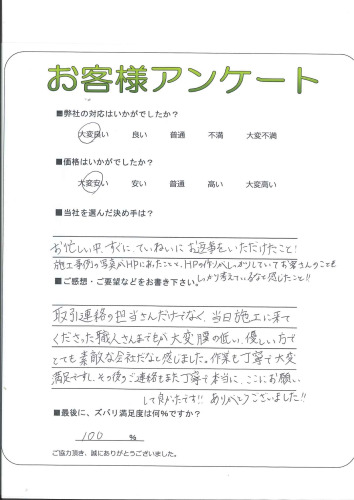 お客様アンケート
■弊社の対応はいかがでしたか？
大変良い 良い 普通 不満 大変不満
■価格はいかがでしたか？
大変安い 安い 普通 高い 大変高い
■当社を選んだ決め手は？
お忙しい中、すぐに、ていねいにお返事をいただけたこと！
施工事例の写真がHPにあったことと、HPの作りがしっかりしていてお客さんのことも
しっかり考えているなと感じた!!
■ご感想・ご要望などをお書き下さい。
取引連絡の担当さんだけでなく、当日施工に来て
くださった職人さんまでもが大変腰の低い、優しい方で
とても素敵な会社だなと感じました。作業も丁寧で大変
満足ですし、その後のご連絡もまた丁寧で本当に、ここにお願い
して良かったです!! ありがとうございました!!
■最後に、ズバリ満足度は何%ですか？
100 %
ご協力頂き、誠にありがとうございました。